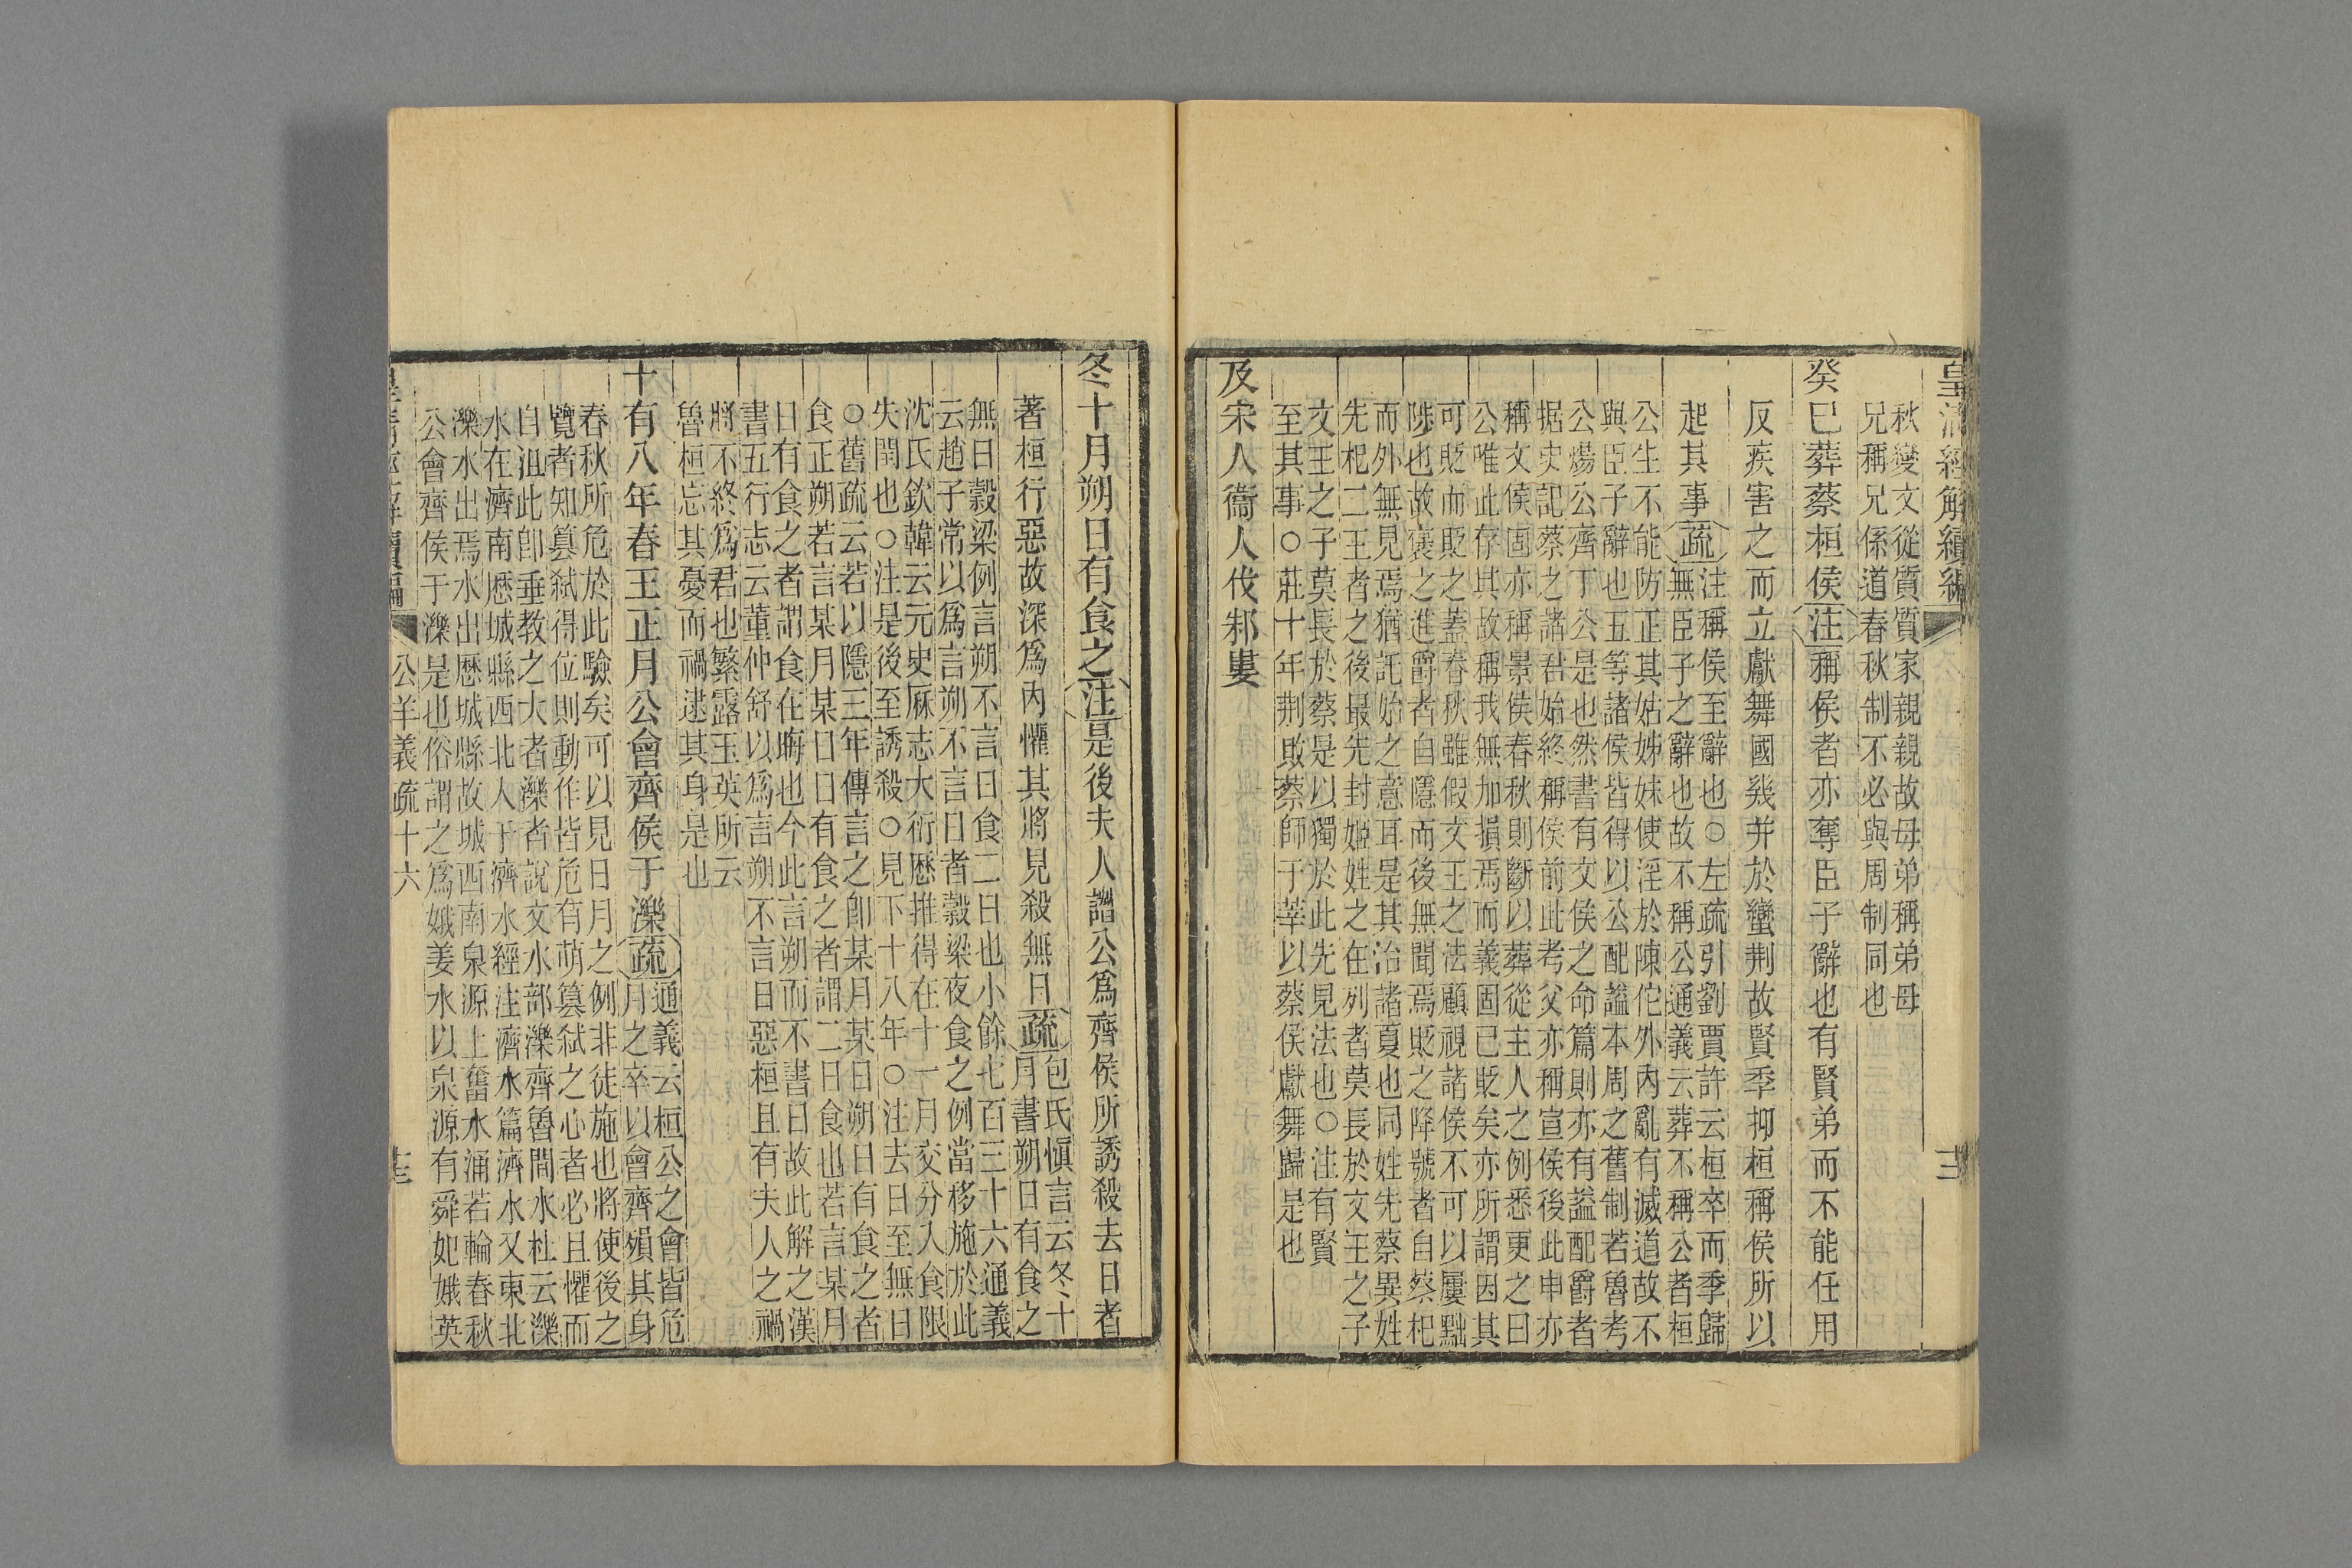 皇清經解續編
秋變文從質質家親親故母弟稱弟母
兄稱兄係道春秋制不必與周制同也
癸巳葬蔡桓侯注稱侯者亦奪臣子辭也有賢弟而不能任用
反疾害之而立獻舞國幾并於蠻荆故賢季抑桓稱侯所以
起其事疏注稱侯至辭也○左疏引劉賈許云桓卒而季歸
無臣子之辭也故不稱公通義云葬不稱公者桓
公生不能防正其姑姊妹使淫於陳佗外內亂有滅道故不
與臣子辭也五等諸侯皆得以公配謚本周之舊制若魯考
公煬公齊丁公是也然書有文侯之命篇則亦有謚配爵者
据史記蔡之諸君始終稱侯前此考父亦稱宣侯後此申亦
稱文侯固亦稱景侯春秋則斷以葬從主人之例悉更之曰
公唯此存其故稱我無加損焉而義固已貶矣亦所謂因其
可貶而貶之蓋春秋雖假文王之法顧視諸侯不可以屢黜
陟也故褒之進爵者自隱而後無聞焉貶之降號者自蔡杞
而外無見焉猶託始之意耳是其治諸夏也同姓先蔡異姓
先杞二王者之後最先封姬姓之在列者莫長於文王之子
文王之子莫長於蔡是以獨於此先見法也○注有賢
至其事○莊十年荆敗蔡師于莘以蔡侯獻舞歸是也
及宋人衞人伐邾婁
冬十月朔日有食之注是後夫人譖公爲齊侯所誘殺去日者
著桓行惡故深爲內懼其將見殺無日疏包氏愼言云冬十
月書朔日有食之
無日穀梁例言朔不言日食二日也小餘七百三十六通義
云趙子常以爲言朔不言日者穀梁夜食之例當移施於此
沈氏欽韓云元史厤志大衍厯推得在十一月交分入食限
失閏也○注是後至誘殺○見下十八年○注去日至無日
○舊疏云若以隱三年傳言之卽某月某日朔日有食之者
食正朔若言某月某日日有食之者謂二日食也若言某月
日有食之者謂食在晦也今此言朔而不書日故此解之漢
書五行志云董仲舒以爲言朔不言日惡桓且有夫人之禍
將不終爲君也繁露玉英所云
魯桓忘其憂而禍逮其身是也
十有八年春王正月公會齊侯于濼疏通義云桓公之會皆危
月之卒以會齊殞其身
春秋所危於此驗矣可以見日月之例非徒施也將使後之
覽者知簒弒得位則動作皆危有萌簒弒之心者必且懼而
自沮此卽垂教之大者濼者說文水部濼齊魯間水杜云濼
水在濟南厯城縣西北人于濟水經注濟水篇濟水又東北
濼水出焉水出厯城縣故城西南泉源上奮水涌若輪春秋
公會齊侯于濼是也俗謂之爲娥姜水以泉源有舜妃娥英
公羊義疏十六